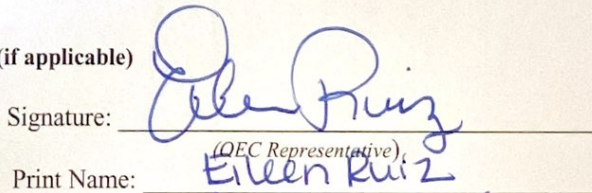 (if applicable)
Signature: Eileen Ruiz
(QEC Representative)
Print Name: Eileen Ruiz